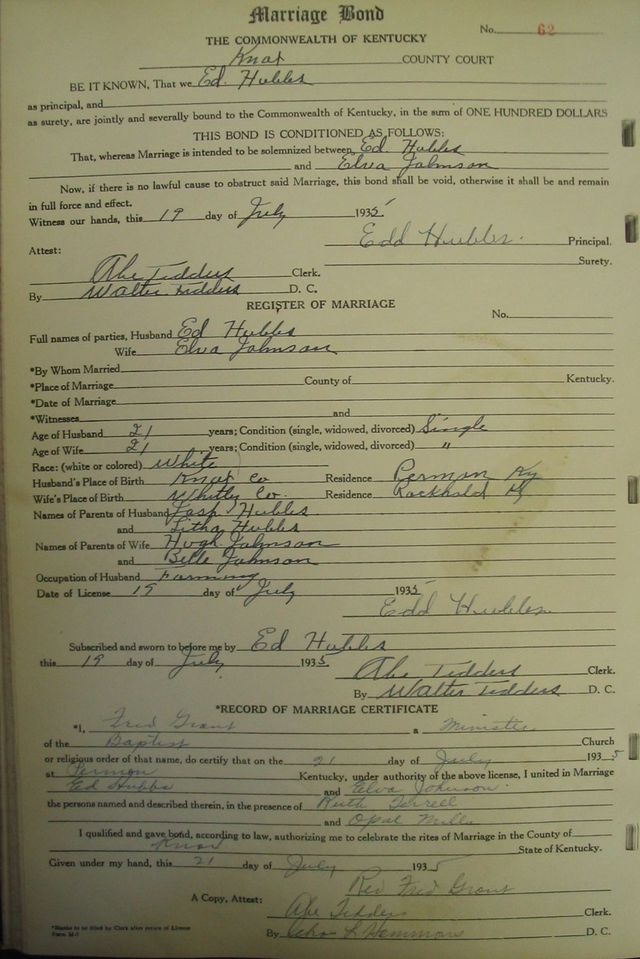 Marriage Bond
No. 62
THE COMMONWEALTH OF KENTUCKY
Knox COUNTY COURT
BE IT KNOWN, That we Ed. Hubbs
as principal, and
as surety, are jointly and severally bound to the Commonwealth of Kentucky, in the sum of ONE HUNDRED DOLLARS
THIS BOND IS CONDITIONED AS FOLLOWS:
That, whereas Marriage is intended to be solemnized between Ed. Hubbs
and Elva Johnson
Now, if there is no lawful cause to obstruct said Marriage, this bond shall be void, otherwise it shall be and remain
in full force and effect.
Witness our hands, this 19 day of July 1935
Edd Hubbs. Principal.
Surety.
Attest:
Abe Tedders Clerk.
By Walter Tedders D. C.
REGISTER OF MARRIAGE
No.
Full names of parties, Husband Ed Hubbs
Wife Elva Johnson
*By Whom Married
*Place of Marriage County of Kentucky.
*Date of Marriage
*Witnesses and
Age of Husband 21 years; Condition (single, widowed, divorced) Single
Age of Wife 21 years; Condition (single, widowed, divorced) "
Race: (white or colored) White
Husband's Place of Birth Knox Co Residence Permon Ky
Wife's Place of Birth Whitly Co. Residence Rockhold Ky
Names of Parents of Husband Hubbs
and Litha Hubbs
Names of Parents of Wife Hugh Johnson
and Belle Johnson
Occupation of Husband Farming
Date of License 19 day of July 1935
Edd Hubbs
Subscribed and sworn to before me by Ed Hubbs
this 19 day of July 1935
Abe Tedders Clerk.
By Walter Tedders D. C.
*RECORD OF MARRIAGE CERTIFICATE
*I, Fred Grant a Minister
of the Baptist Church
or religious order of that name, do certify that on the 21 day of July 1935
at Permon Kentucky, under authority of the above license, I united in Marriage
Ed Hubbs and Elva Johnson
the persons named and described therein, in the presence of Ruth Terrell
and Opal Mills
I qualified and gave bond, according to law, authorizing me to celebrate the rites of Marriage in the County of
Knox State of Kentucky.
Given under my hand, this 21 day of July 1935
Rev Fred Grant
A Copy, Attest:
Abe Tedders Clerk.
By Hammons D. C.
*Blanks to be filled by Clerk after return of License
Form M-1